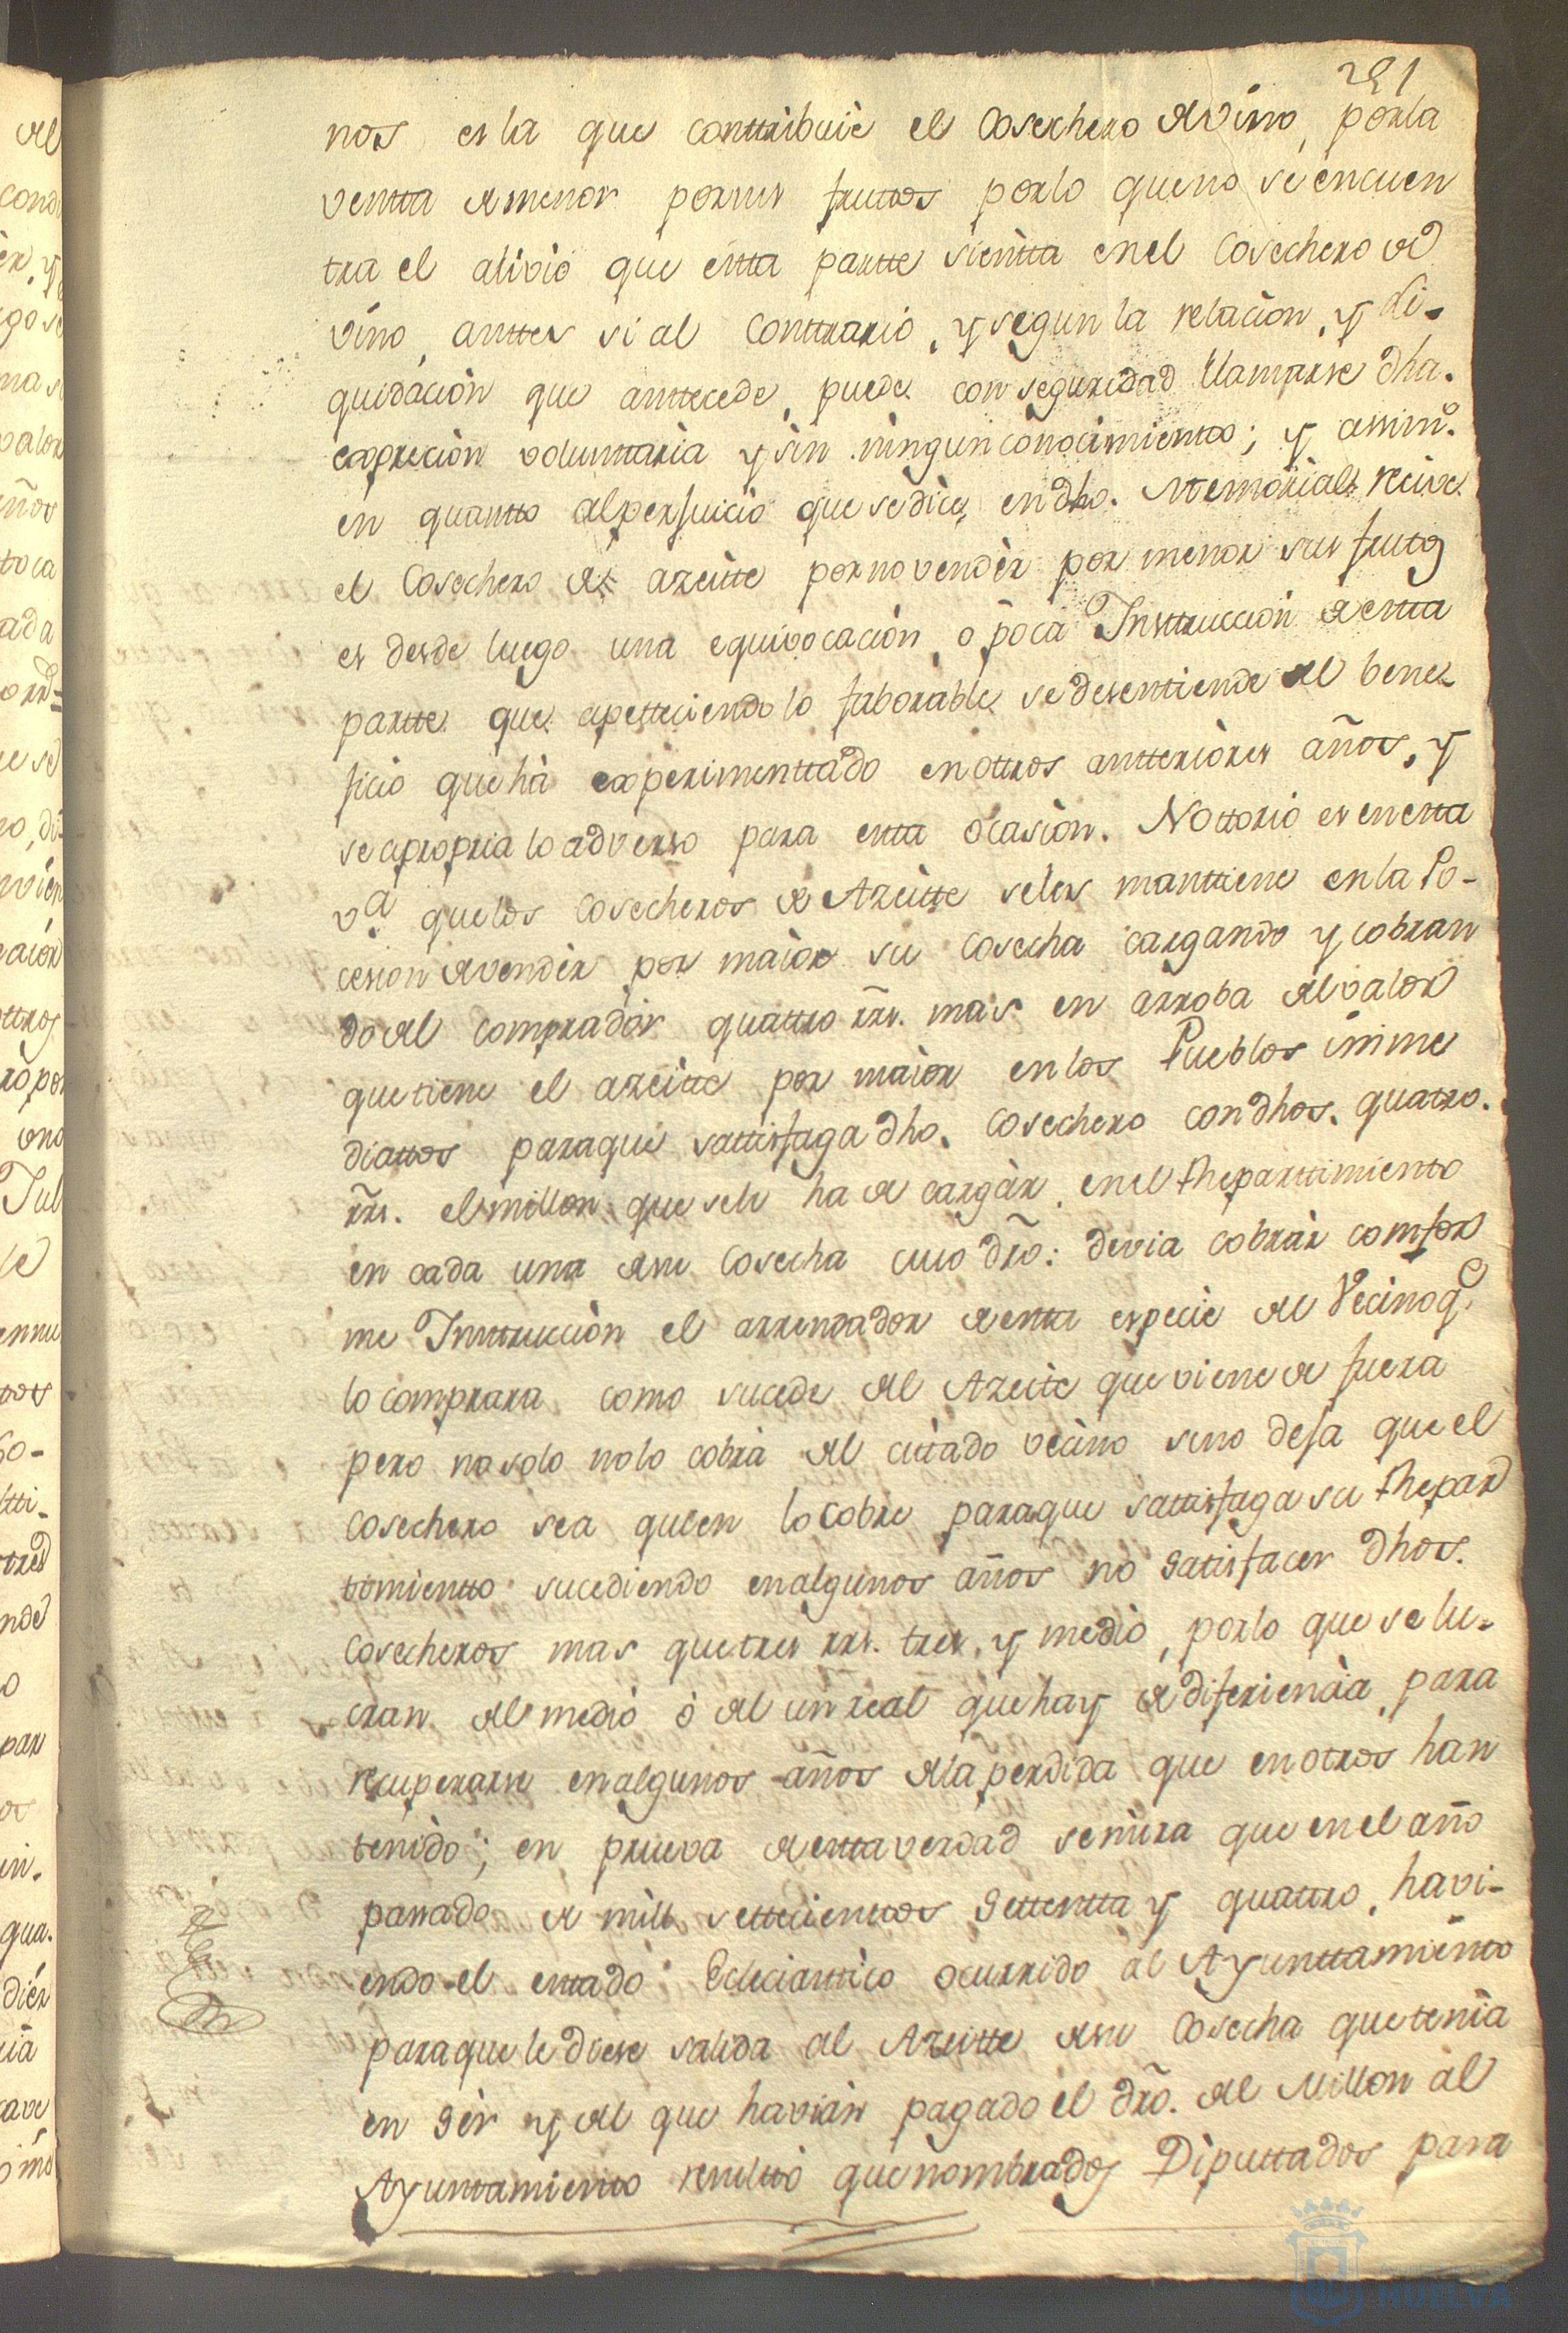 291
nos es la que contribuie el Cosechero de vino, por la
ventta de menor por sus fruttos por lo que no se encuen
tra el alivio que esta partte sientta en el Cosechero de
vino, anttes si al Conttrario, y segun la relacion, y li-
quidacion que anttecede, puede con seguridad llamarse dha.
expresion voluntaria y sin ningun conocimientto; y assimo.
en quantto al perjuicio que se dice, en dho. Memorial, recive
el Cosechero de azeitte por no vender por menor sus frutos
es desde luego una equivocación, o poca Insttrucción de esta
partte que apetteciendo lo faborable se desentiende del bene-
ficio que há experimenttado en ottros antteriores años, y
se apropria lo adverso para esta ocasion. Nottorio es en esta
va. que los Cosecheros de Azeitte se les manttiene en la Po-
cesion de vender por maior su Cosecha cargando y cobran
do del comprador quattro rrs. mas en arroba del valor
que tiene el azeitte por maior en los Pueblos inme
diattos para que sattisfaga dho. Cosechero con dhos. quatro.
rrs. el millon que se le ha de cargar en el Reparttimiento
en cada una de su Cosecha cuio dro: devia cobrar comfor
me Insttruccion el arrendador de esta especie del Vecino qe.
lo comprara como sucede del Azeite que viene de fuera
pero no solo no lo cobra del cittado vecino sino deja que el
Cosechero sea quien lo cobre para que sattisfaga su Repar
timientto sucediendo en algunos años no satisfacer dhos.
Cosecheros mas que tres rrs. tres, y medio, por lo que se lu-
cran del medio ó del un real que hay de diferiencia, para
recuperarse en algunos años de la perdida que en otros han
tenido; en prueva de esta verdad se mira que en el año
passado de mill settecienttos settentta y quattro, havi-
endo el estado Eclesiasttico ocurrido al Ayunttamiento
para que le diese salida al Azeitte de su Cosecha que tenia
en ser y del que havian pagado el dro. del Millon al
Ayuntamiento resulttó que nombrados Diputtados para
HUELVA